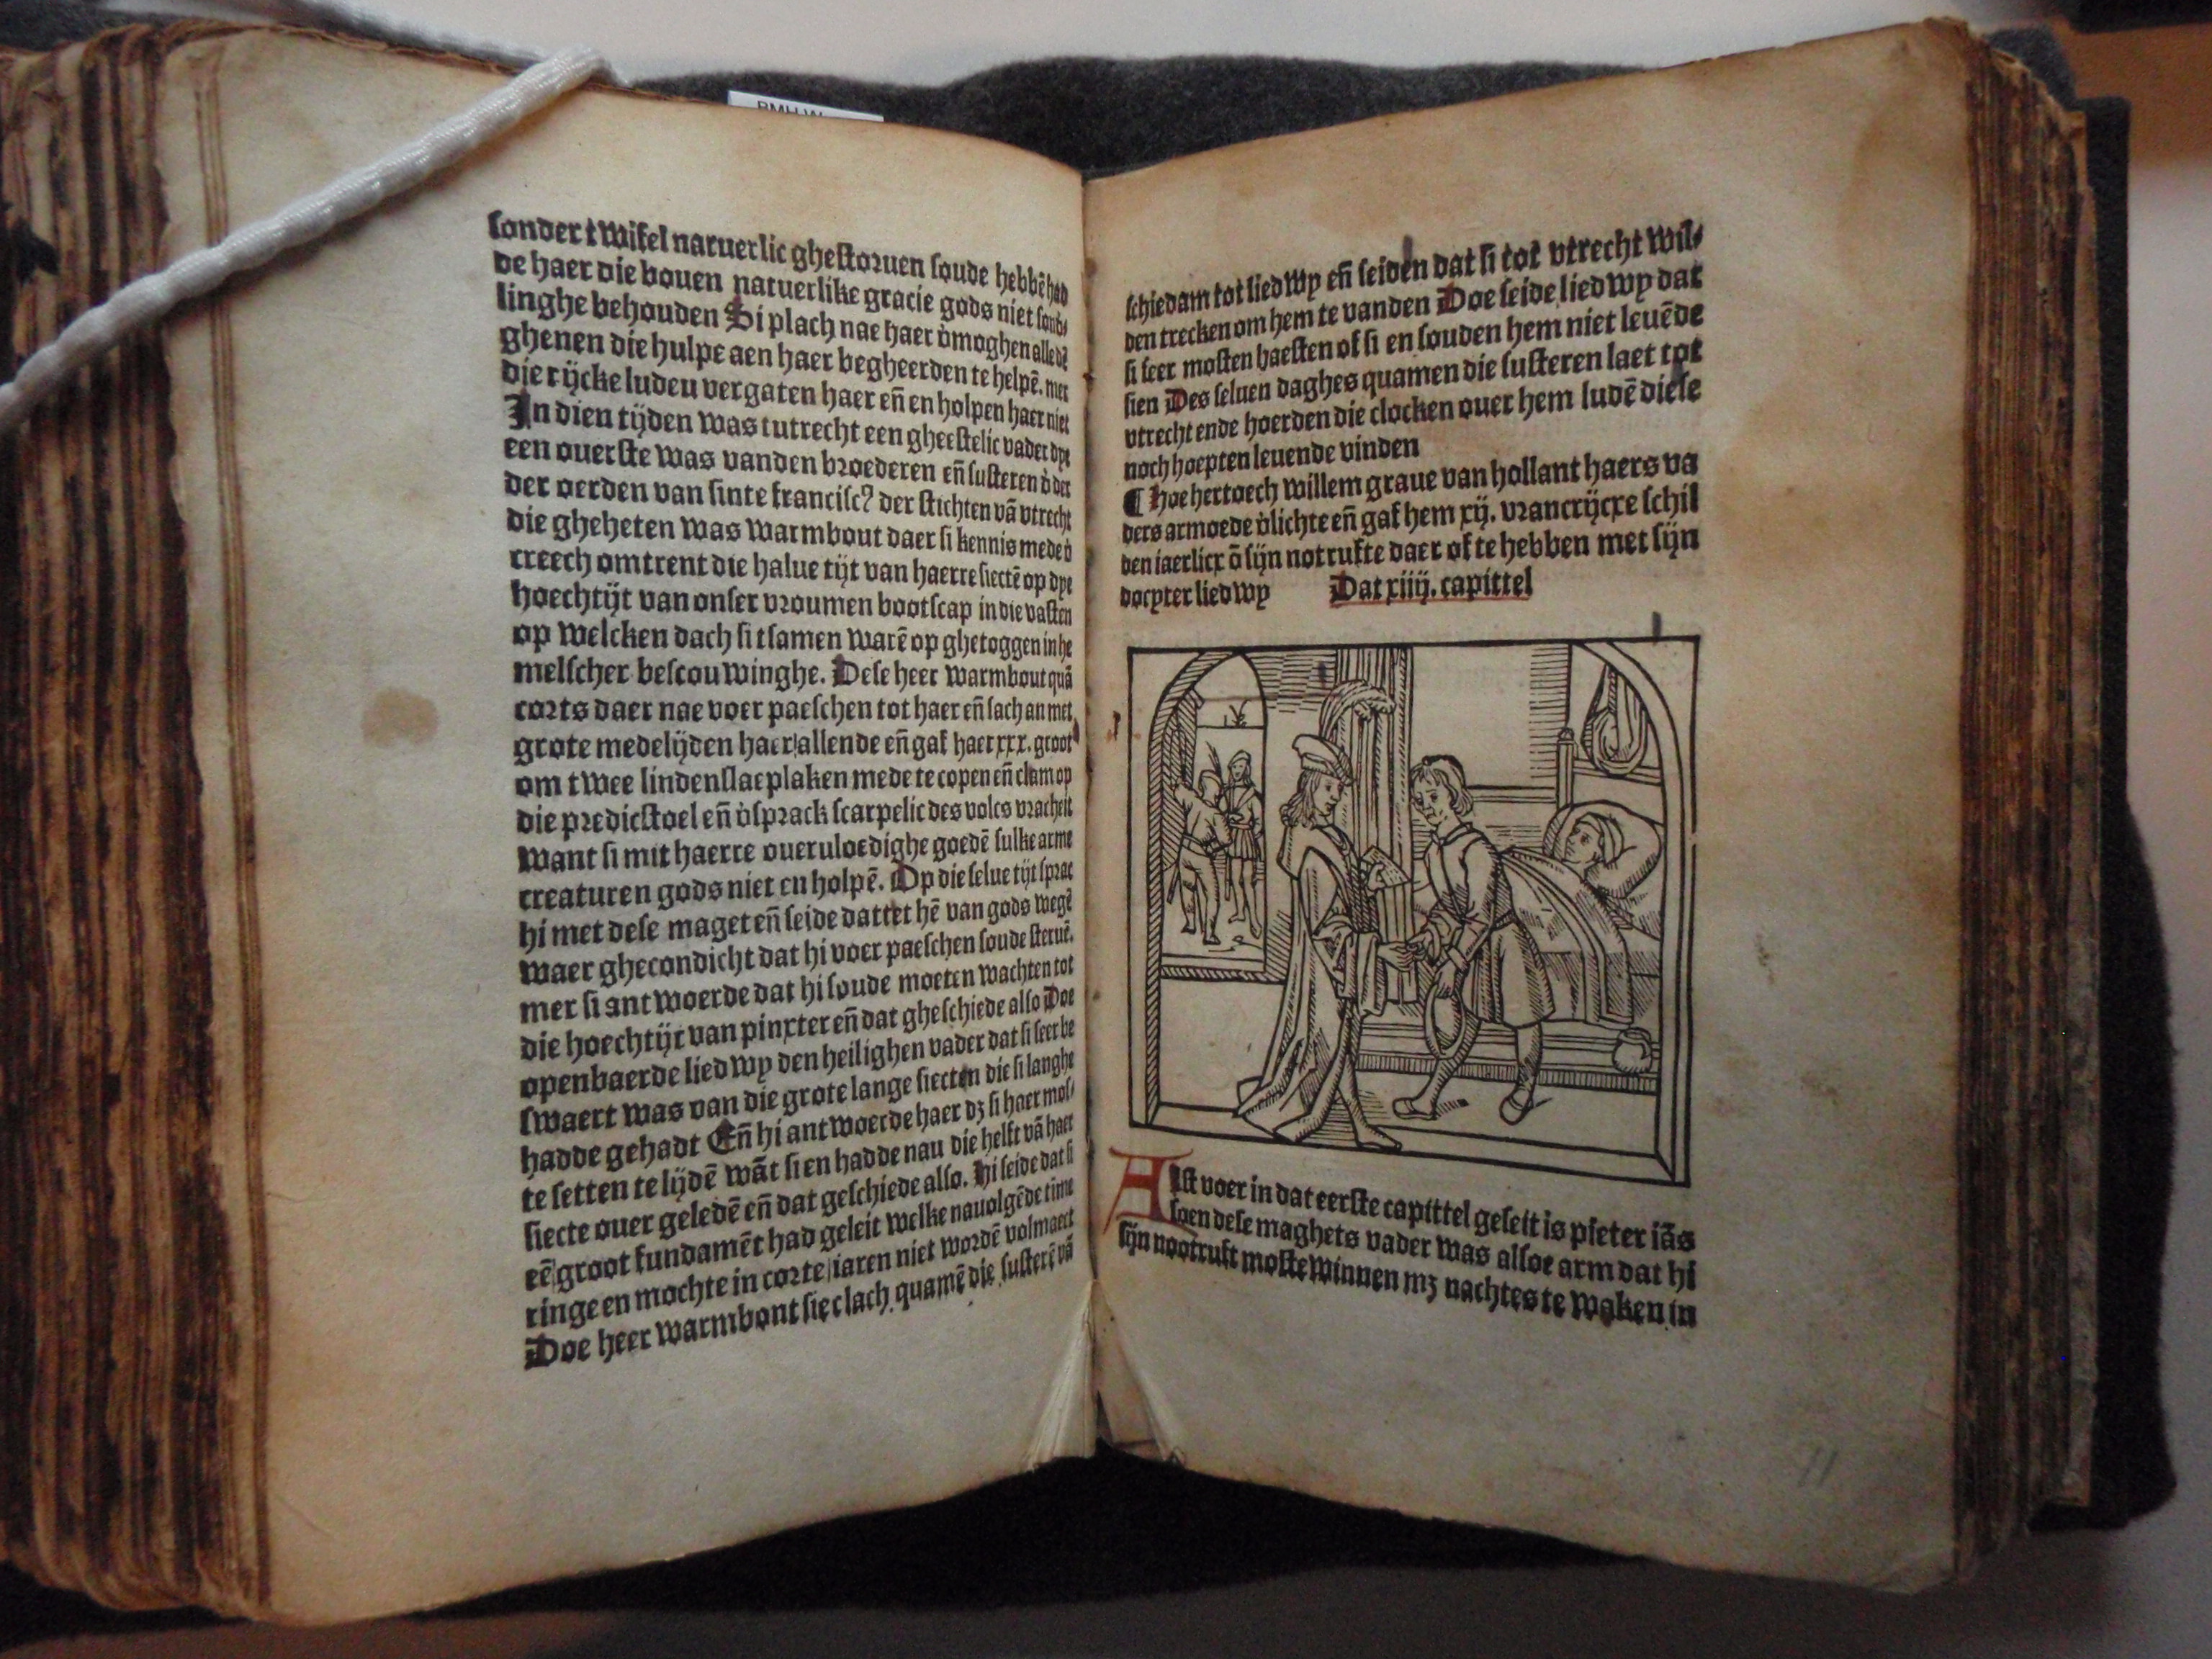 BMH W
sonder twifel natuerlic ghestoruen soude hebbē had
de haer die bouen natuerlike gracie gods niet sond⸗
linghe behouden Si plach nae haer v̄moghen alled̄
ghenen die hulpe aen haer begheerden te helpē. mer
die rijcke luden vergaten haer eñ en holpen haer niet
In dien tijden was tutrecht een gheestelic vader dye
een ouerste was vanden broederen eñ susteren
der oerden van sinte francisc⁹ der stichten vā vtrecht
die gheheten was warmbout daer si kennis mede
creech omtrent die halue tijt van haerre siectē op dye
hoechtijt van onser vroumen bootscap in die vasten
op welcken dach si tsamen warē op ghetoggen in he
melscher bescouwinghe. Dese heer warmbout quā
corts daer nae voer paeschen tot haer eñ sach an met
grote medelijden haer allende eñ gaf haer xxx. groot
om twee linden slaeplaken mede te copen eñ clam op
die predicstoel eñ v̄sprack scarpelic des volcs vracheit
want si mit haerre oueruloedighe goedē sulke arme
creaturen gods niet en holpē. Op die selue tijt sprac
hi met dese maget eñ seide dattet hē van gods wegē
waer ghecondicht dat hi voer paeschen soude steruē.
mer si antwoerde dat hi soude moeten wachten tot
die hoechtijt van pinxter eñ dat gheschiede also Doe
openbaerde liedwy den heilighen vader dat si seer be
swaert was van die grote lange siecten die si langhe
hadde gehadt Eñ hi antwoerde haer dz si haer mos⸗
te setten te lijdē wāt si en hadde nau die helft vā haer
siecte ouer geledē eñ dat geschiede also. Hi seide dat si
eē groot fundamēt had geleit welke nauolgēde time
ringe en mochte in corte iaren niet wordē volmaect
Doe heer warmbont siec lach quamē die susterē vā
schiedam tot liedwy eñ seiden dat si tot vtrecht wil⸗
den trecken om hem te vanden Doe seide liedwy dat
si seer mosten haesten of si en souden hem niet leuēde
sien Des seluen daghes quamen die susteren laet tot
vtrecht ende hoerden die clocken ouer hem ludē diese
noch hoepten leuende vinden
¶ Hoe hertoech willem graue van hollant haers va
ders armoede v̄lichte eñ gaf hem xij. vrancrijcxe schil
den iaerlicx ō sijn notrufte daer of te hebben met sijn
docyter liedwy Dat xiiij. capittel
Alst voer in dat eerste capittel geseit is pieter iās
soen dese maghets vader was alsoe arm dat hi
sijn nootruft moste winnen mz nachtes te waken in
11